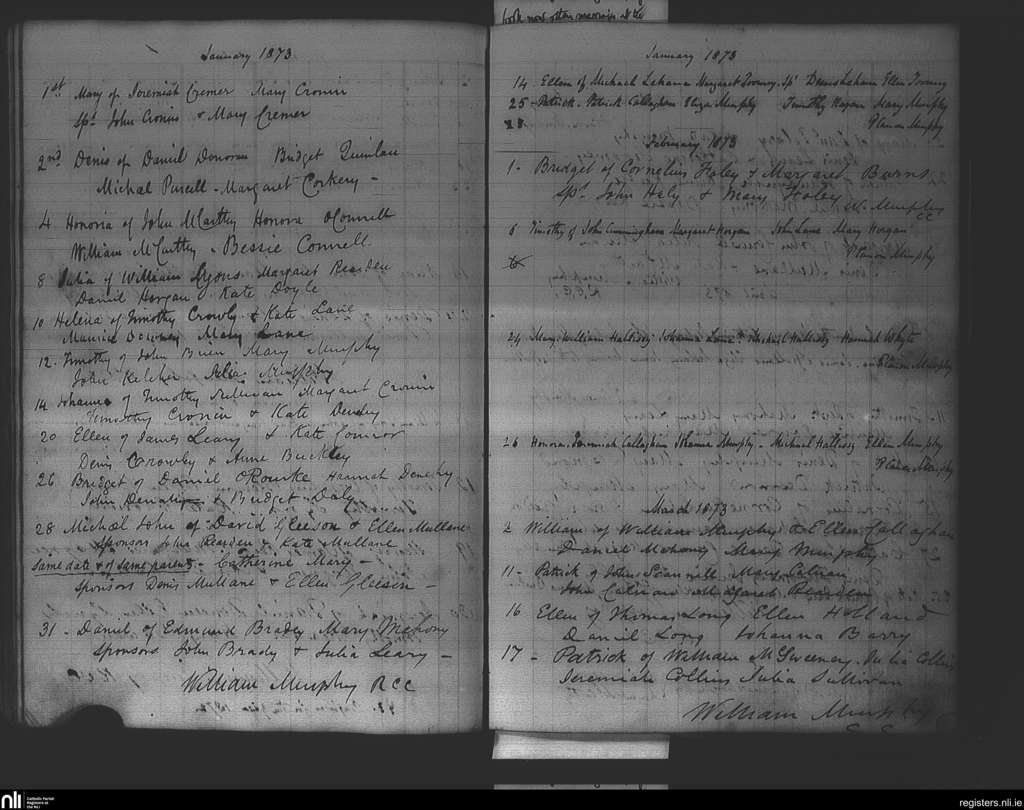 January 1873
1st Mary of Jeremiah Cremer Mary Cronin
Sps John Cronin & Mary Cremer
2nd Denis of Daniel Donovan Bridget Quinlan
Michal Purcell - Margaret Corkery -
4 Honoria of John McCarthy Honora O'Connell
William McCarthy - Bessie Connell
8 Julia of William Lyons Margaret Rearden
Daniel Horgan & Kate Doyle
10 Helena of Timothy Crowly & Kate Lane
Maurice Downey Mary Lane
12. Timothy of John Brien Mary Murphy
John Keleher Murphy
14 Johanna of Timothy Sullivan Margaret Cronin
Timothy Cronin & Kate
20 Ellen of James Leary & Kate Connor
Denis Crowly & Anne Buckley
26 Bridget of Daniel O'Rourke Hannah Denehy
John & Bridget Daly
28 Michal John of David Gleeson & Ellen Mullane
Sponsors John Rearden & Kate Mullane
Same date & of same parents - Catherine Mary -
Sponsors Denis Mullane & Ellen Gleeson -
31 - Daniel of Edmund Brady Mary Mahony
Sponsors John Brady & Julia Leary -
William Murphy RCC
book now
January 1873
14 Ellen of Michael Lehane Margaret Toomy. Sps Denis Lehane Ellen Toomy
25 - Patrick. Patrick Callaghan Eliza Murphy Timothy Hogan Mary Murphy
Murphy
28
February 1873
1 - Bridget of Cornelius Foley & Margaret Barns
Sps. John Haly & Mary Foley
W. Murphy
CC
6 Timothy of John Cunningham Margaret Horgan John Lane Mary Horgan
Murphy
24 Mary. William Hallissy Johanna Lane. Michael Hallissy Hannah Whyte
Murphy
26 Honora. Jeremiah Callaghan Johanna Murphy - Michael Hallissy Ellen Murphy
Murphy
March 1873
2 William of William Murphy & Ellen Callaghan
Daniel Mahony Mary Murphy
11 - Patrick of John Scannell Mary
John Margaret Rearden
16 Ellen of Thomas Long Ellen Holland
Daniel Long Johanna Barry
17 - Patrick of William McSweeney Julia Collins
Jeremiah Collins Julia Sullivan
William Murphy
nli
Catholic Parish
Registers at
the NLI
registers.nli.ie